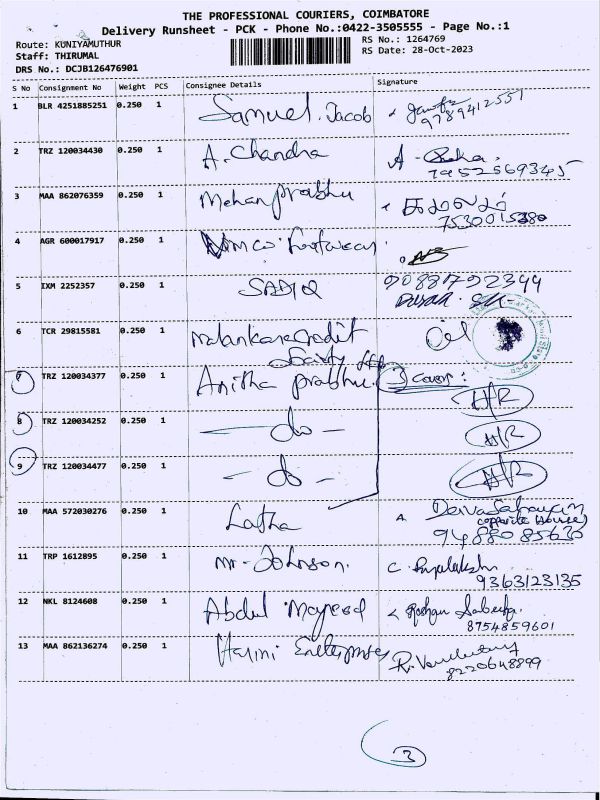 THE PROFESSIONAL COURIERS, COIMBATORE
Delivery Runsheet - PCK - Phone No.:0422-3505555 - Page No.:1
Route: KUNIYAMUTHUR
Staff: THIRUMAL
DRS No.: DCJB126476901
RS No.: 1264769
RS Date: 28-Oct-2023
S No Consignment No Weight PCS Consignee Details Signature
1 BLR 4251885251 0.250 1 Samuel. Jacob
9789412551
2 TRZ 120034430 0.250 1 A. Chandra A -
7952569345
3 MAA 862076359 0.250 1 Mohan prabhu
7530015380
4 AGR 600017917 0.250 1
5 IXM 2252357 0.250 1 SADIQ 9088792344
6 TCR 29815581 0.250 1 malankara credit
7 TRZ 120034377 0.250 1 Anitha prabhu 3 cover:
H/R
8 TRZ 120034252 0.250 1 - do - H/R
9 TRZ 120034477 0.250 1 - do - H/R
10 MAA 572030276 0.250 1 Latha
(opposite House)
94880 85630
11 TRP 1612895 0.250 1 mr. Johnson. C.
9363123135
12 NKL 8124608 0.250 1 Abdul Majeed
8754859601
13 MAA 862136274 0.250 1 Harini Enterprises R.
8220648899
3